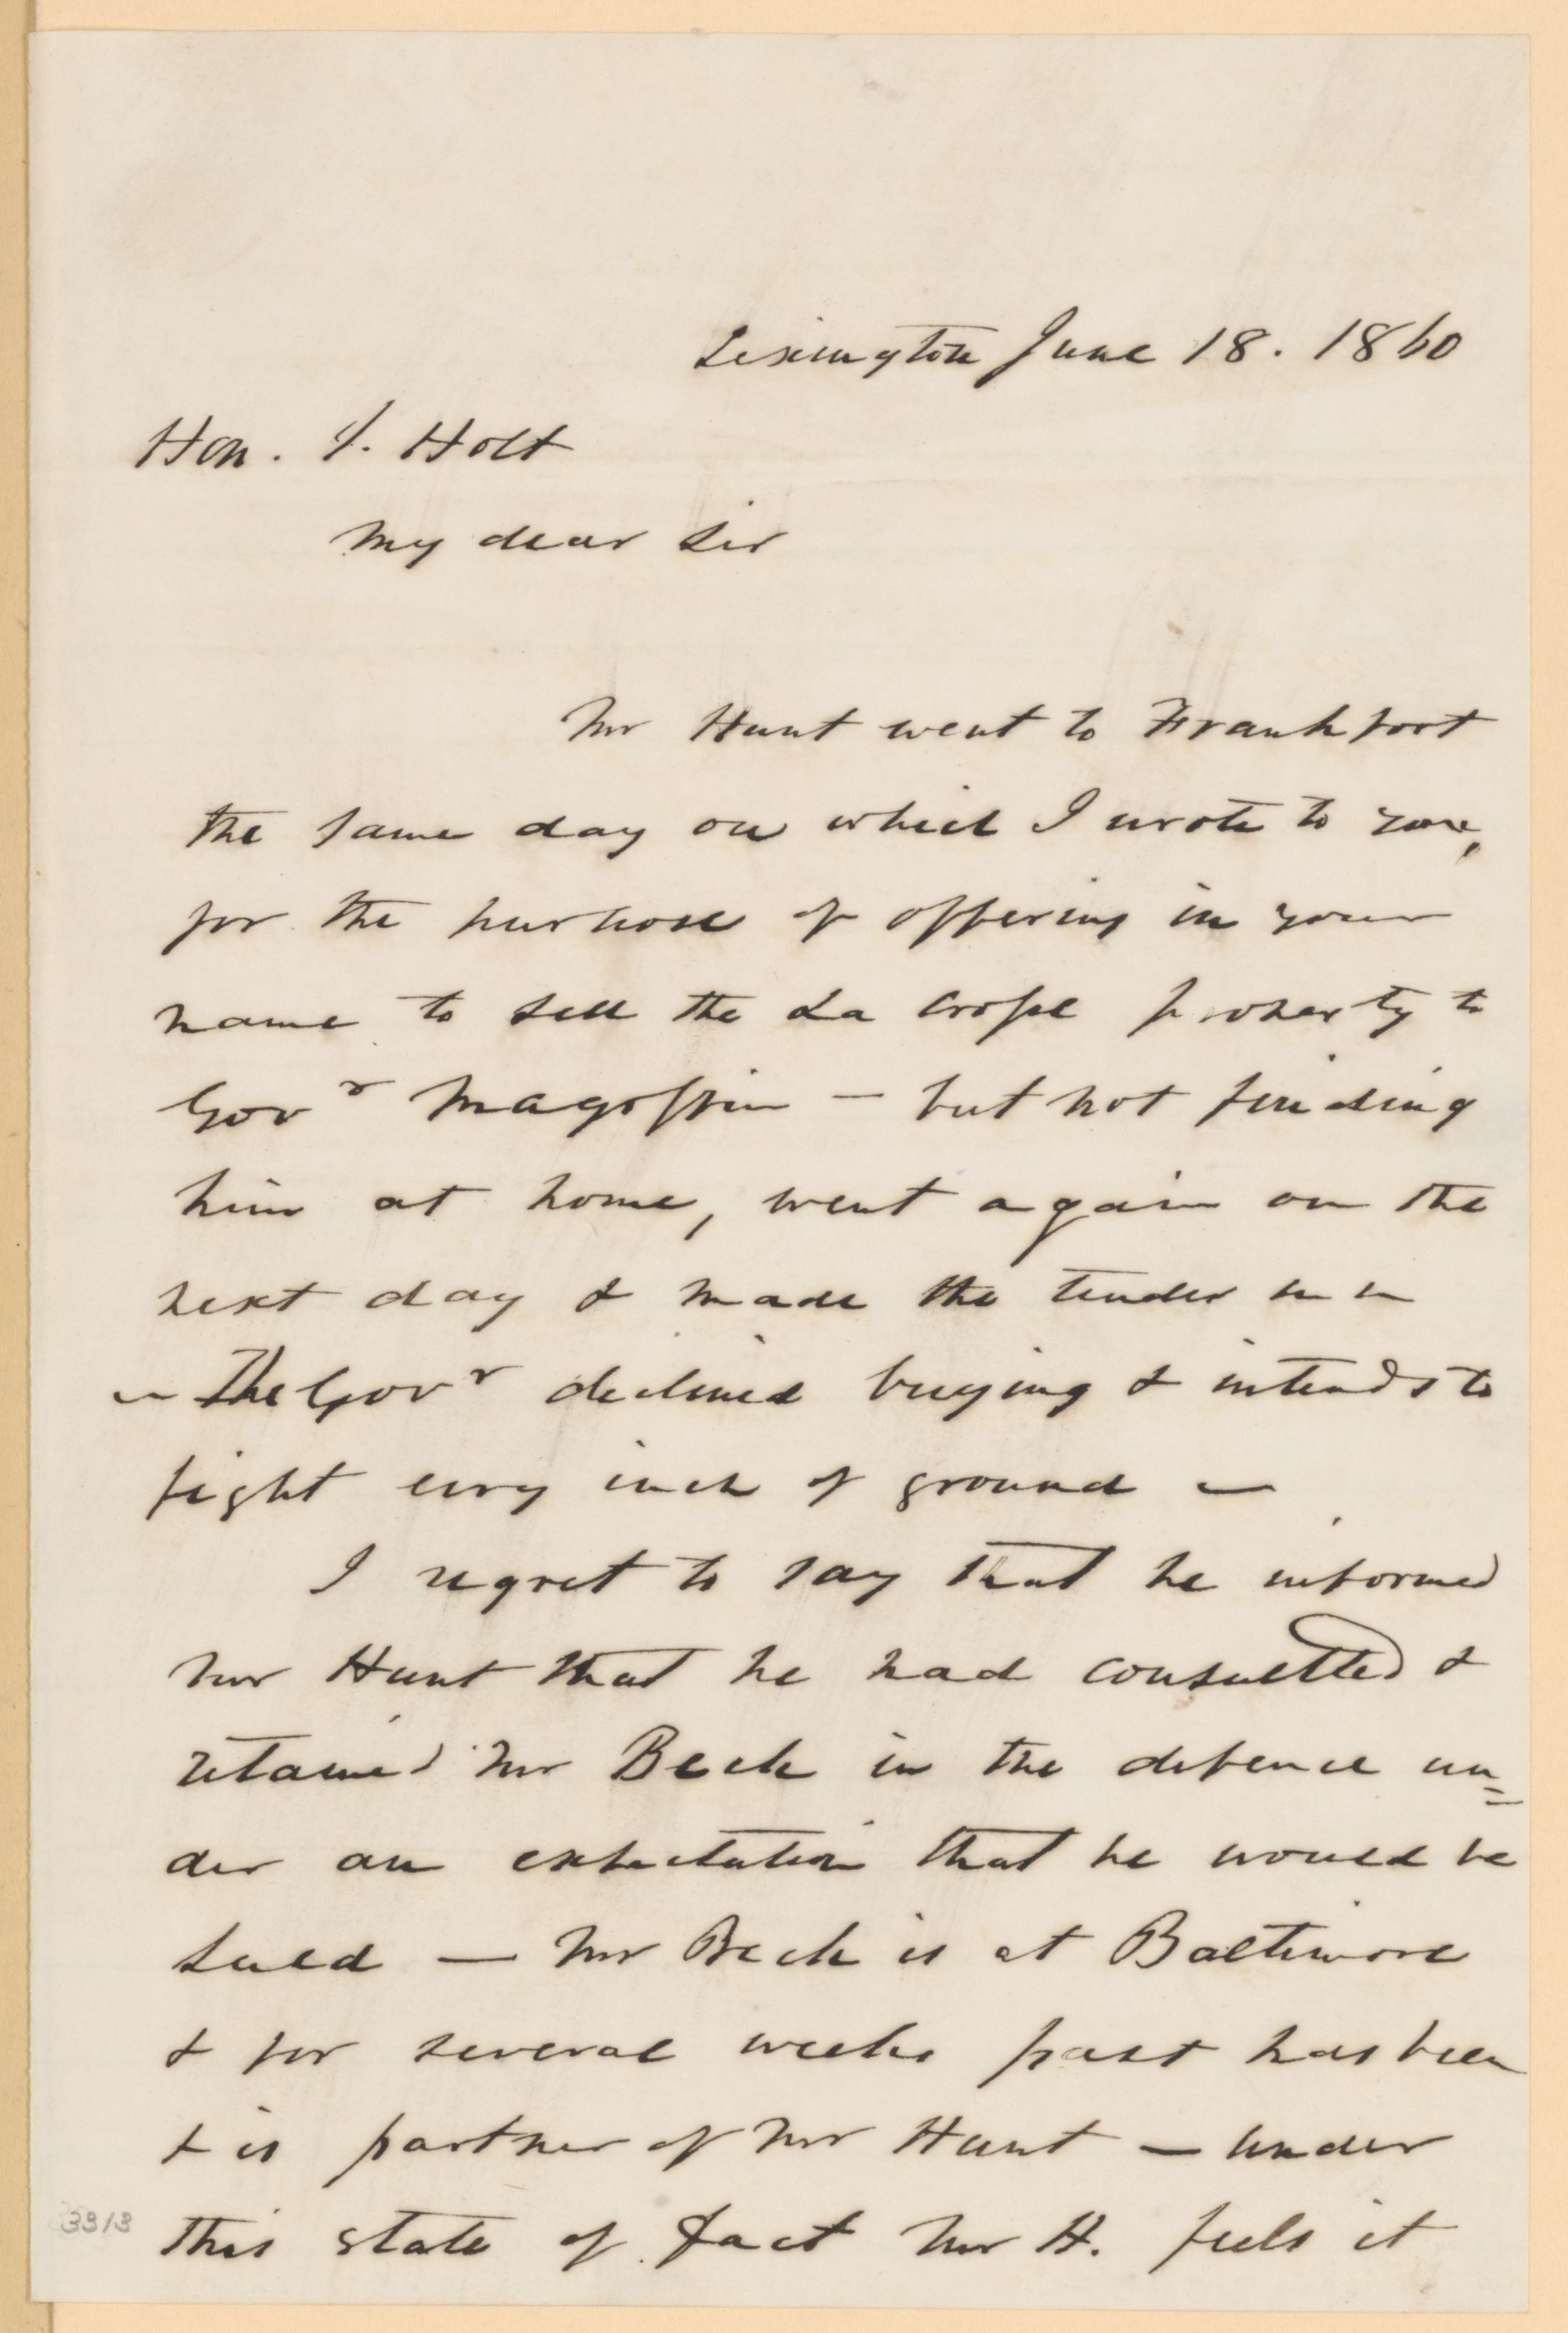 Lexington June 18. 1860
Hon. J. Holt
My dear Sir
Mr Hunt went to Frankfort
the same day on which I wrote to you,
for the purpose of offering in your
name to sell the La Crosse property to
Govr Magoffin — but not finding
him at home, went again on the
next day & made the tender
— The Govr declined buying & intends to
fight every inch of ground —
I regret to say that he informed
Mr Hunt that he had consulted &
retained Mr Beck in the defence un=
der an expectation that he would be
sued — Mr Beck is at Baltimore
& for several weeks past has been
& is partner of Mr Hunt — under
this state of fact Mr H. feels it
3313